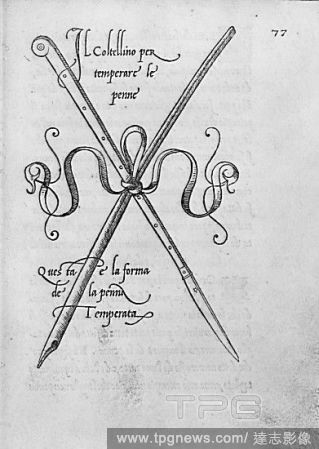 77
Il Coltellino per
temperare le
penne
Questa è la forma
de la penna
Temperata
TPG
www.tpgnews.com/ 達志影像